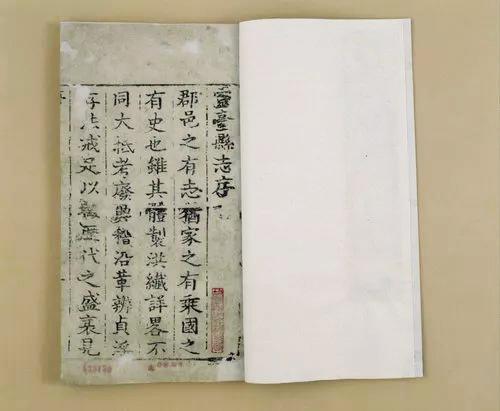 靈臺縣志序
郡邑之有志猶家之有乘國之
有史也雖其體製洪纖詳畧不
同大抵考廢興稽沿革辨貞淫
存法戒足以歷代之盛衰見